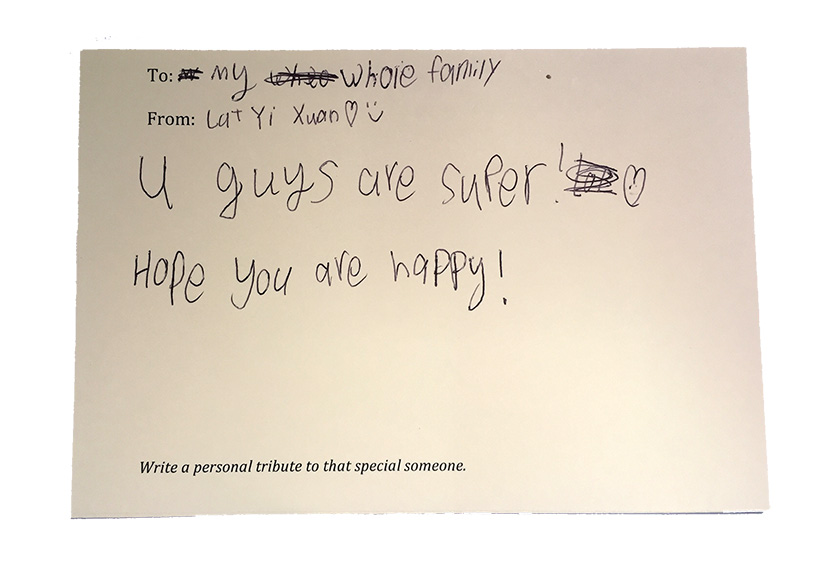 To: My whole family
From: Lat Yi Xuan♡ Ü
U guys are super! ♡
Hope you are happy!
Write a personal tribute to that special someone.